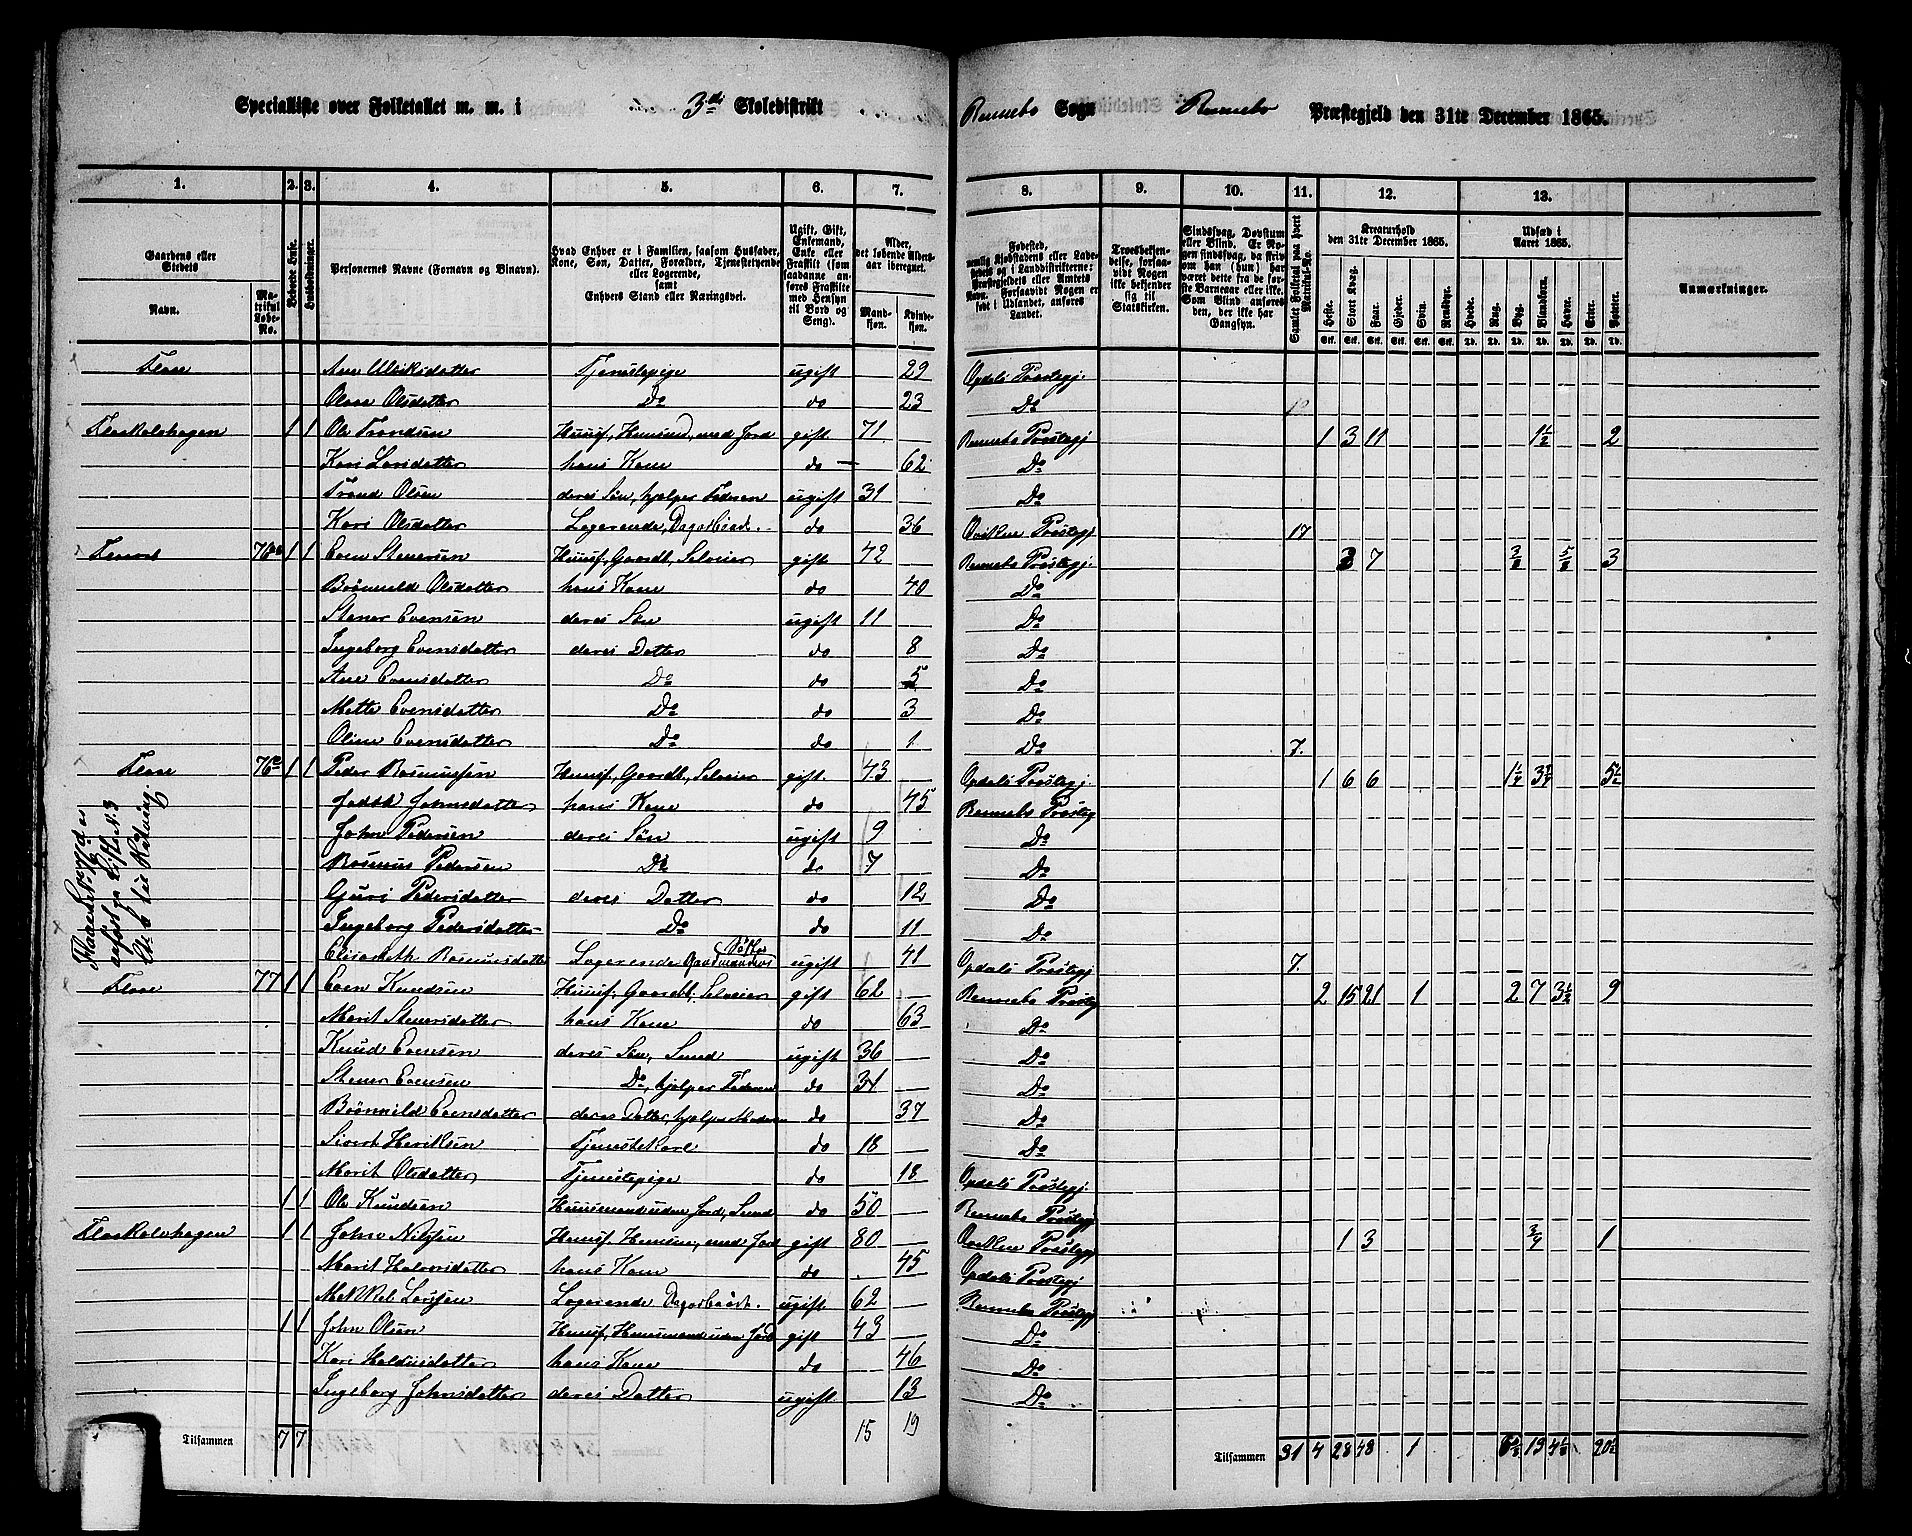 Specialliste over Folketallet m. m. i 3die Skoledistrikt Rennebo Sogn Rennebo Præstegjeld den 31te December 1865.
1. 2. 3. 4. 5. 6. 7. 8. 9. 10. 11. 12. 13.
Gaardens eller Stedets Navn. Matrikul Løbe-No. Beboede Huse. Husholdninger. Personernes Navne (Fornavn og Binavn). Hvad Enhver er i Familien, saasom Husfader, Kone, Søn, Datter, Forældre, Tjenestetyende eller Logerende, samt Enhvers Stand eller Næringsvei. Ugift, Gift, Enkemand, Enke eller Fraskilt (som saadanne anføres Fraskilte med Hensyn til Bord og Seng). Alder, det løbende Aldersaar iberegnet. Mandkøn. Kvindekøn.
Fødested, nemlig Kjøbstadens eller Ladestedets eller i Landdistrikterne: Præstegjeldets og Amtets Navn. Forsaavidt Nogen er født i Udlandet, anføres Landet. Troesbekjendelse, forsaavidt Nogen ikke bekjender sig til Statskirken. Sindssvag, Døvstum eller Blind. Samlet Folketal paa hvert Matrikul-No. Kreaturhold den 31te December 1865. Heste. Stort Kvæg. Faar. Gjeder. Svin. Rensdyr. Udsæd i Aaret 1865. Hvede. Rug. Byg. Blandkorn. Havre. Erter. Poteter. Anmærkninger.
Flaae Ane Ulriksdatter Tjenestepige ugift 29 Opdals Præstegj.
Olava Olsdatter Do do 23 Do
Flaakolshagen 1 1 Ole Trondsen Huusf, Huusmd, med Jord gift 71 Rennebo Præstegj 1 3 11 1½ 2
Kari Larsdatter hans Kone do 62 Do
Trond Olsen deres Søn, hjelper Faderen ugift 31 Do
Kari Olsdatter Logerende, Dagarbeid. do 36 Qvikne Præstegj 17
76 1 1 Even Stenersen Huusf, Gaardb, Selveier gift 42 Rennebo Præstegj. 7 3
Brønnild Olsdatter hans Kone do 40 Do
Stener Evensen deres Søn ugift 11 Do
Ingeborg Evensdatter deres Datter do 8 Do
Ane Evensdatter Do do 5 Do
Mette Evensdatter Do do 3 Do
Oline Evensdatter Do do 1 Do 7.
Flaae 76 1 1 Peder Rasmussen Huusf, Gaardb, Selveier gift. 43 Opdals Præstegj. 1 6 6 1½ 5½
Johnsdatter hans Kone do 45 Rennebo Præsteg
John Pedersen deres Søn ugift 9 Do
Rasmus Pedersen Do do 7 Do
Guri Pedersdatter deres Datter do 12 Do
Ingeborg Pedersdatter Do do 11 Do
Elisabeth Rasmusdatter Logerende Gaardmandens Søster ugift 41 Opdals Præstegj 7.
Flaae 77 1 1 Even Knudsen Huusf, Gaardb, Selveier gift 62 Rennebo Præsteg 2 15 21 1 2 7 3½ 9
Marit Stenersdatter hans Kone do 63 Do
Knud Evensen deres Søn, Smed ugift 36 Do
Stener Evensen Do, hjelper Faderen do 31 Do
Brønnild Evensdatter deres Datter, hjelper Moderen do 37 Do
Sivert Henriksen Tjenestekarl do 18 Do
Marit Olsdatter Tjenestepige do 18 Opdals Præstegj
1 1 Ole Knudsen Huusmand uden Jord, Smed do 50 Rennebo Præstegj
Flaakolshagen 1 1 John Nilssen Huusf. Huusm, med Jord gift 80 Qvikne Præstegj 1 3 1
Marit Halvorsdatter hans Kone do 45 Opdals Præstegj
Mekkel Larssen Logerende Dagarbeid. ugift 62 Rennebo Præstegj
1 1 John Olsen Huusf, Huusmand uden Jord gift 43 Do
Kari Haldosdatter hans Kone do 46 Do
Ingeborg Johnsdatter deres Datter ugift 13 Do
Tilsammen 7 7 15 19 Tilsammen 31 4 28 48 1 6½ 19 4½ 20½